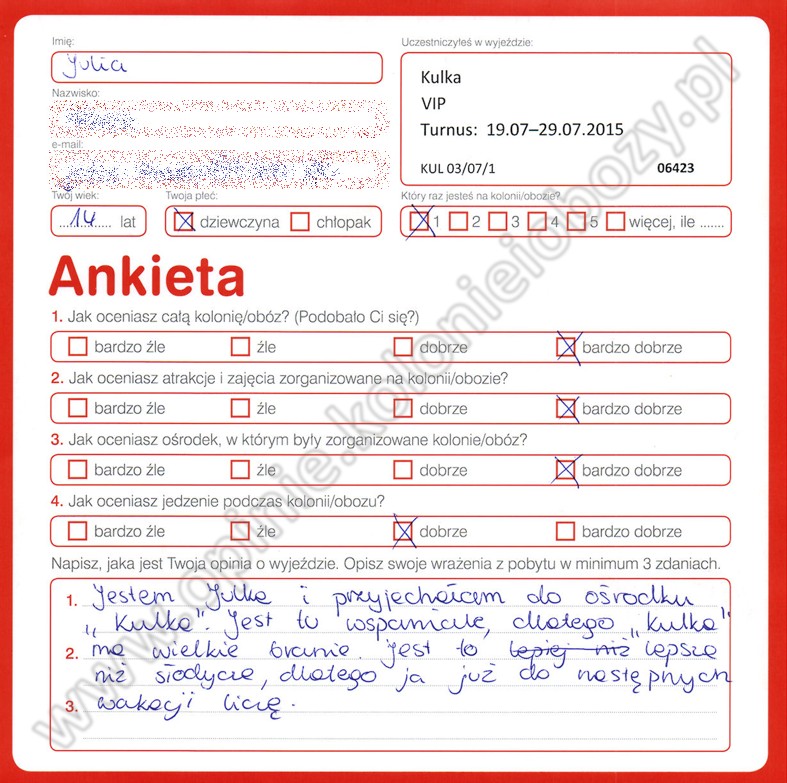 Imię:
Julia
Uczestniczyłeś w wyjeździe:
Kulka
VIP
Turnus: 19.07–29.07.2015
KUL 03/07/1 06423
Nazwisko:
e-mail:
Twój wiek:
14 lat
Twoja płeć:
dziewczyna chłopak
Który raz jesteś na kolonii/obozie?
1 2 3 4 5 więcej, ile .......
Ankieta
1. Jak oceniasz całą kolonię/obóz? (Podobało Ci się?)
bardzo źle źle dobrze bardzo dobrze
2. Jak oceniasz atrakcje i zajęcia zorganizowane na kolonii/obozie?
bardzo źle źle dobrze bardzo dobrze
3. Jak oceniasz ośrodek, w którym były zorganizowane kolonie/obóz?
bardzo źle źle dobrze bardzo dobrze
4. Jak oceniasz jedzenie podczas kolonii/obozu?
bardzo źle źle dobrze bardzo dobrze
Napisz, jaka jest Twoja opinia o wyjeździe. Opisz swoje wrażenia z pobytu w minimum 3 zdaniach.
1. Jestem Julka i przyjechałam do ośrodku
„Kulka". Jest tu wspaniale, dlatego „Kulka"
2. ma wielkie branie. Jest to lepiej niż lepsze
niż słodycze, dlatego ja już do następnych
3. wakacji liczę.
www.opinie.kolonieiobozy.pl